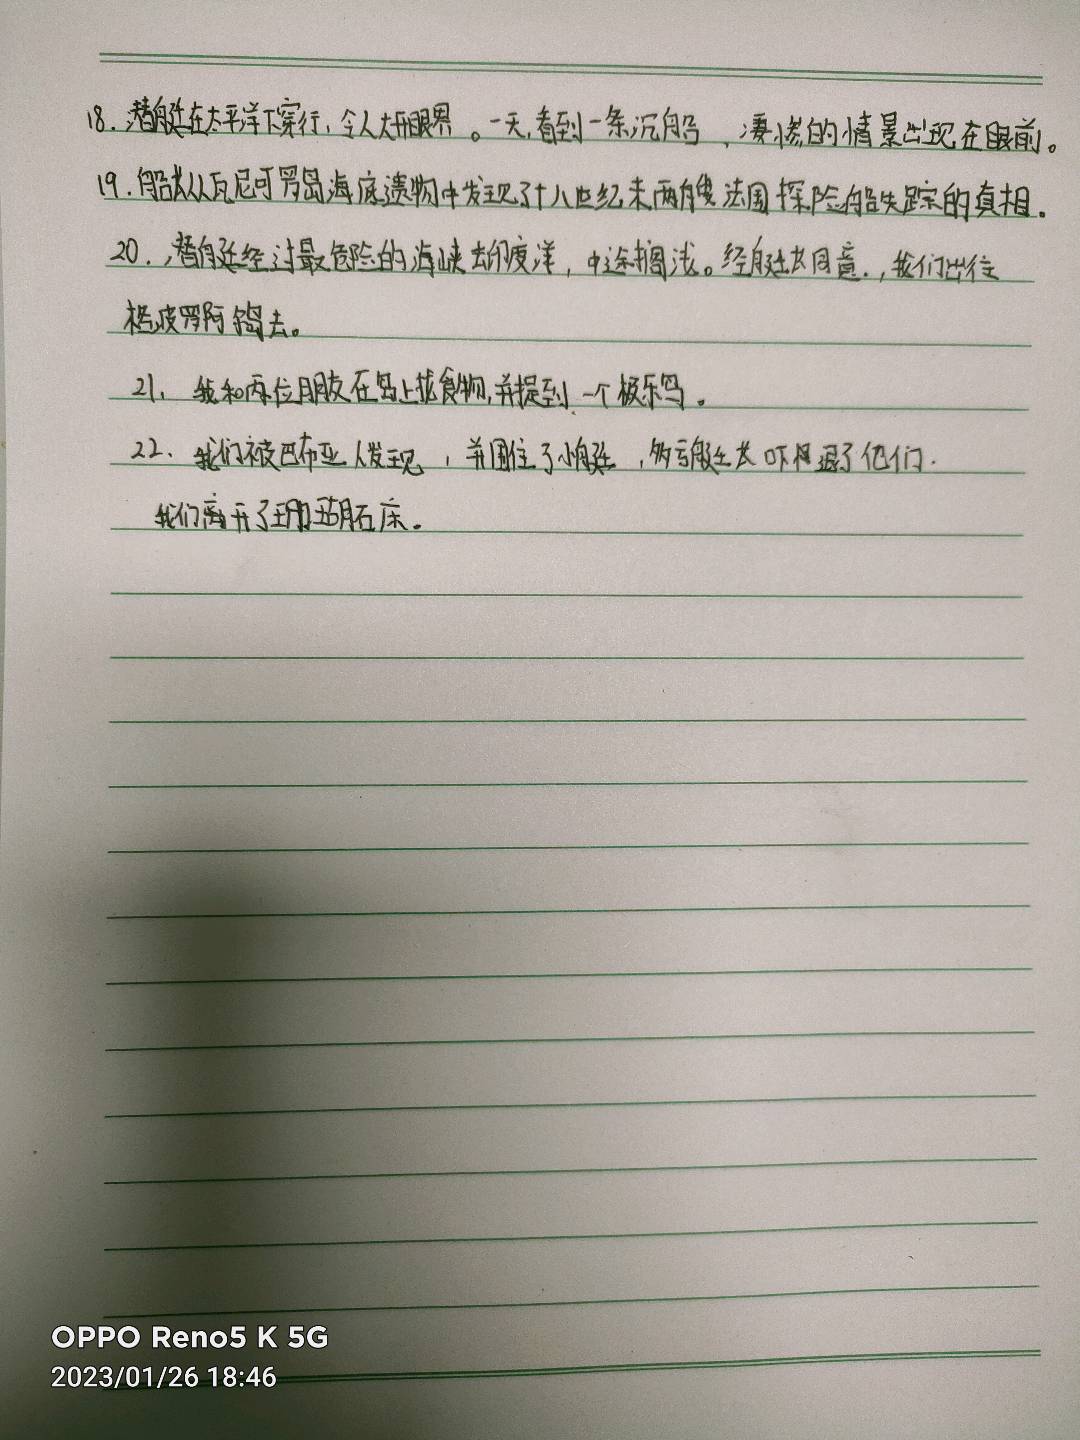 18. 潜艇在太平洋下穿行,令人大开眼界。一天,看到一条沉船,凄惨的情景出现在眼前。
19. 船长从瓦尼可罗岛海底遗物中发现了十八世纪末两艘法国探险船失踪的真相。
20. 潜艇经过最危险的海峡去印度洋,中途搁浅。经艇长同意,我们出往
格波罗阿岛去。
21、我和两位朋友在岛上找食物,并捉到一个极乐鸟。
22、我们被巴布亚人发现,并围住了小艇,多亏艇长吓退了他们.
我们离开了珊瑚石床。
OPPO Reno5 K 5G
2023/01/26 18:46